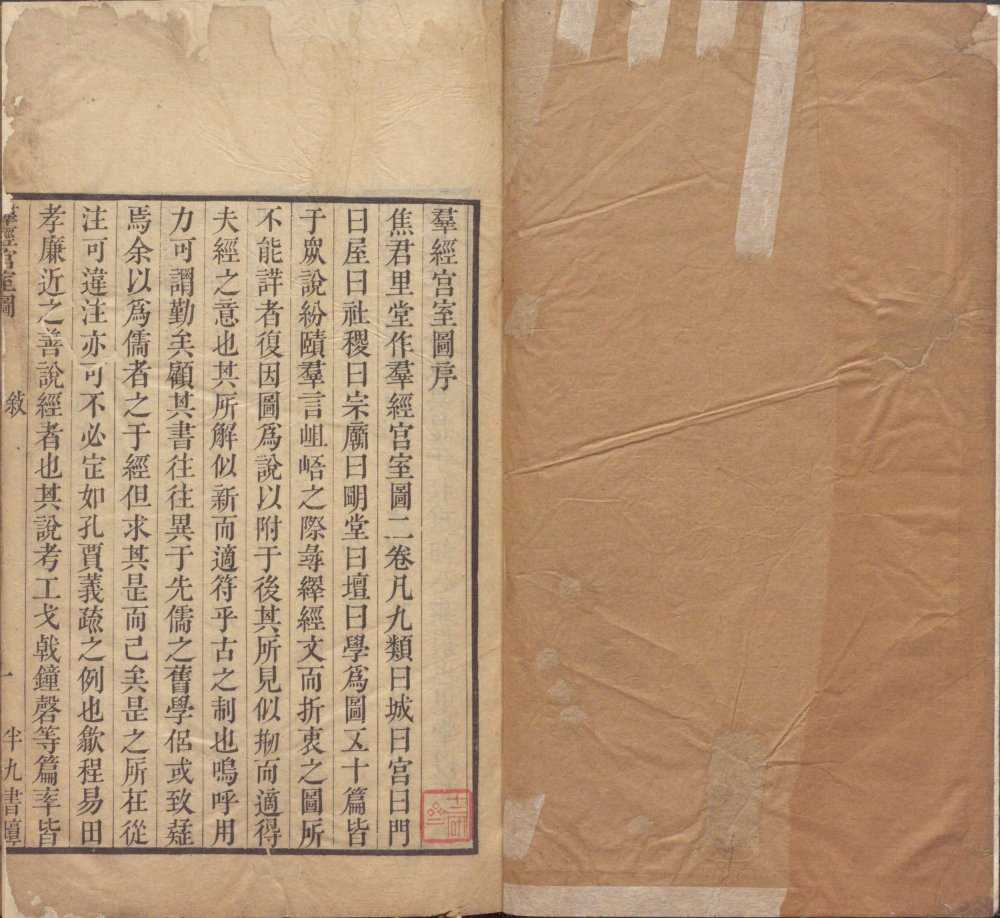 羣經宫室圖序
焦君里堂作羣經宫室圖二卷凡九類曰城曰宫曰門
曰屋曰社稷曰宗廟曰明堂曰壇曰學爲圖五十篇皆
于衆說紛賾羣言岨峿之際尋繹經文而折衷之圖所
不能詳者復因圖爲說以附于後其所見似刱而適得
夫經之意也其所解似新而適符乎古之制也嗚呼用
力可謂勤矣顧其書往往異于先儒之舊學侶或致疑
焉余以爲儒者之于經但求其是而已矣是之所在從
注可違注亦可不必定如孔賈義疏之例也歙程易田
孝廉近之善說經者也其說考工戈戟鐘磬等篇率皆
羣經宫室圖
敘
一
半九書塾